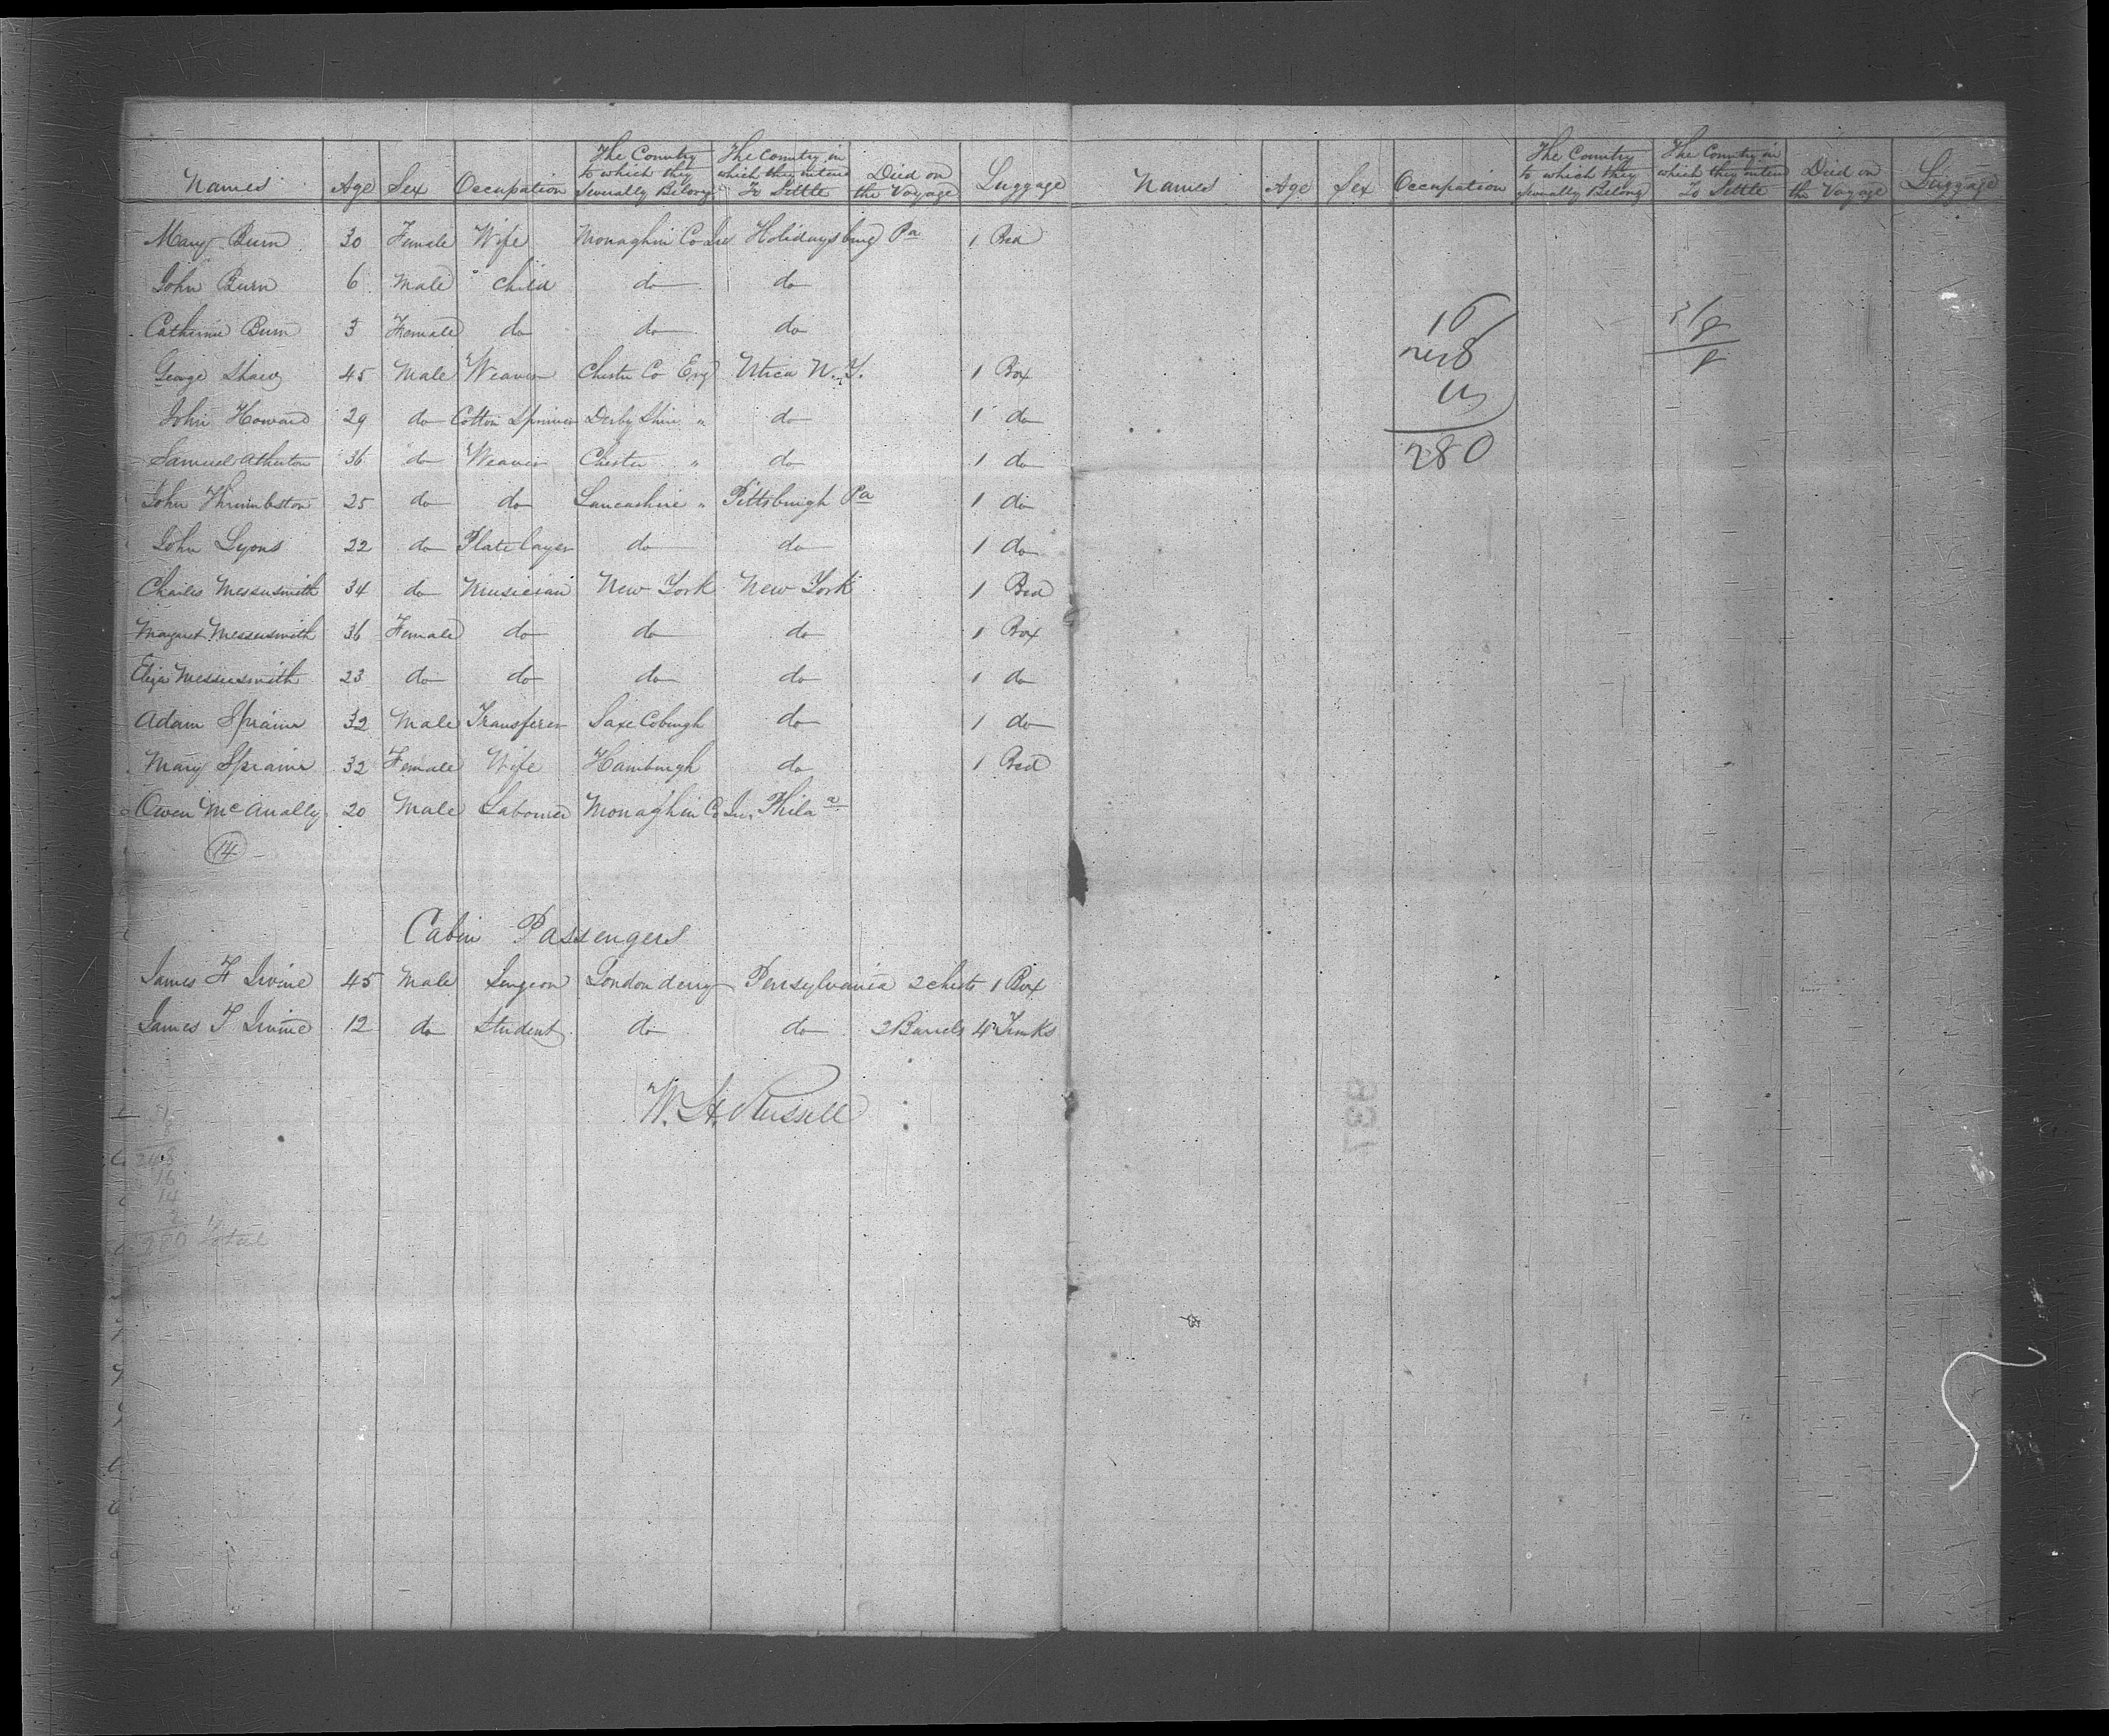 Names Age Sex Occupation The Country to which they Severally Belong The Country in which they intend To Settle Died on the Voyage Luggage
Mary Burn 30 Female Wife Monaghin Co Ire Holidaysburg Pa 1 Bed
John Burn 6 Male child do do
Catherine Burn 3 Female do do do
George Shaw 45 Male Weaver Chester Co Eng Utica N.Y. 1 Box
John Howard 29 do Cotton Spinner Derby Shire " do 1 do
Samuel Atherton 36 do Weaver Chester " do 1 do
John Thrumbston 25 do do Lancashire " Pittsburgh Pa 1 do
John Lyons 22 do Plate layer do do 1 do
Charles Messersmith 34 do Musician New York New York 1 Bed
Margaret Messersmith 36 Female do do do 1 Box
Eliza Messersmith 23 do do do do 1 do
Adam Sprainer 32 Male Transferer Saxe Coburgh do 1 do
Mary Sprainer 32 Female Wife Hamburgh do 1 Bed
Owen McAnally 20 Male Labourer Monaghin Co Ire. Phila
14
Cabin Passengers
James H Irvine 45 Male Surgeon Londonderry Pensylvania 2 chests 1 Box
James T Irvine 12 do Student do do 2 Barrels 4 Trunks
W. H. Russell
248
16
14
2
280 Total
Names Age Sex Occupation The Country to which they Severally Belong The Country in which they intend To Settle Died on the Voyage Luggage
16
280